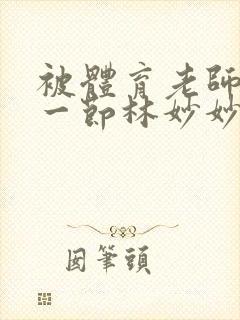 被體育老師
一節林妙妙
囡筆頭